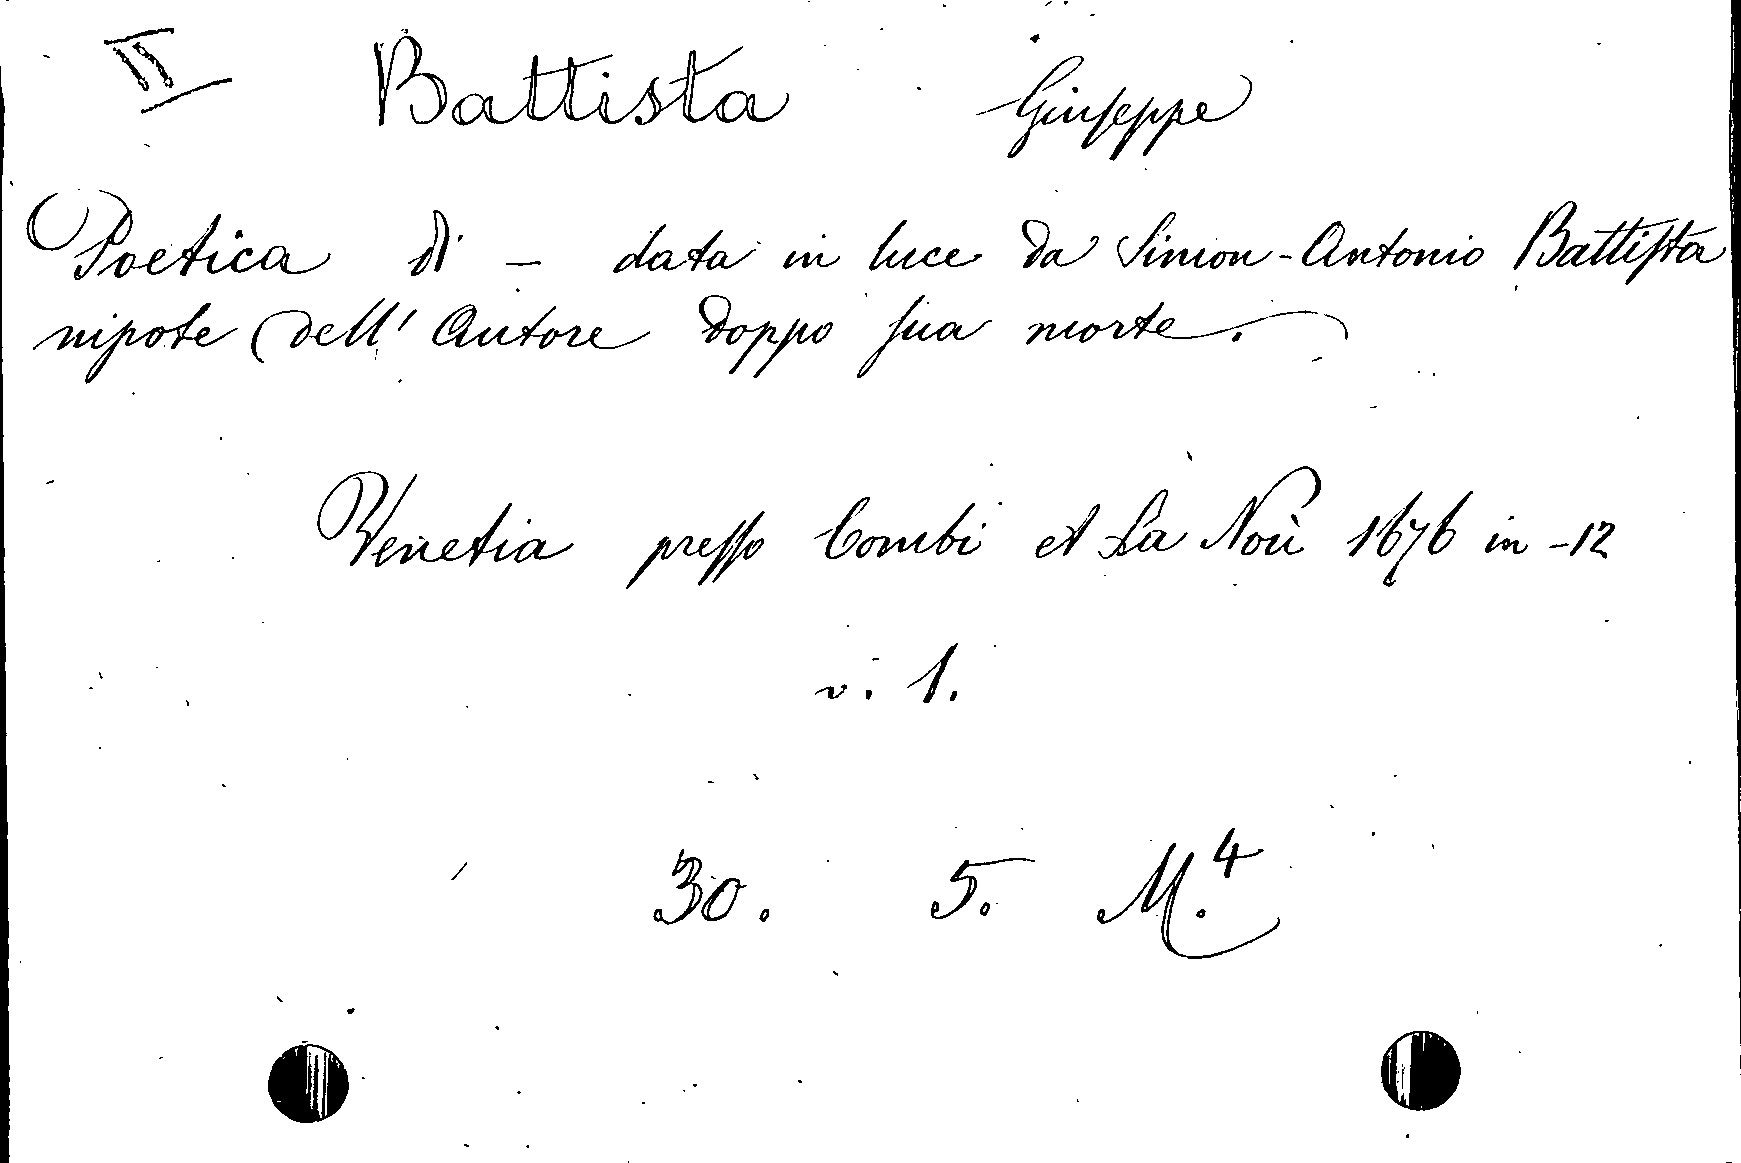 II Battista Giuseppe
Poetica di - data in luce da Simon-Antonio Battista
nipote dell' Autore doppo sua morte.
Venetia presso Combi et La Noù 1676 in-12
v. 1.
30. 5. M.4